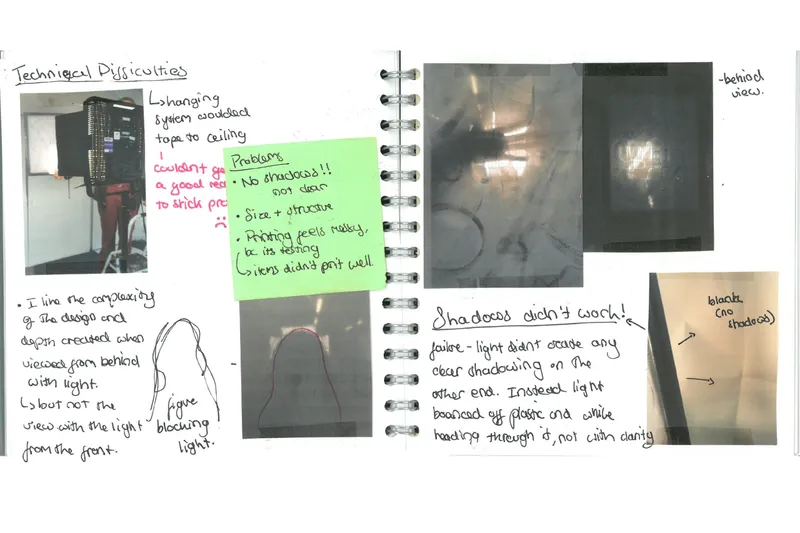 Technical Difficulties
↳ hanging
system woulded
tape to ceiling
couldn't ge
a good res
to stick pro
:(
Problems
• No shadows!!
not clear
• Size + structure
• Printing feels messy,
bc its testing
↳ items didn't print well.
• I like the complexity
of the design and
depth created when
viewed from behind
with light.
↳ but not the
view with the light
from the front.
figure
blocking
light.
-behind
view.
Shadows didn't work!
failure - light didn't create any
clear shadowing on the
other end. Instead light
bounced off plastic and while
heading through it, not with clarity
blank
(no
shadows)